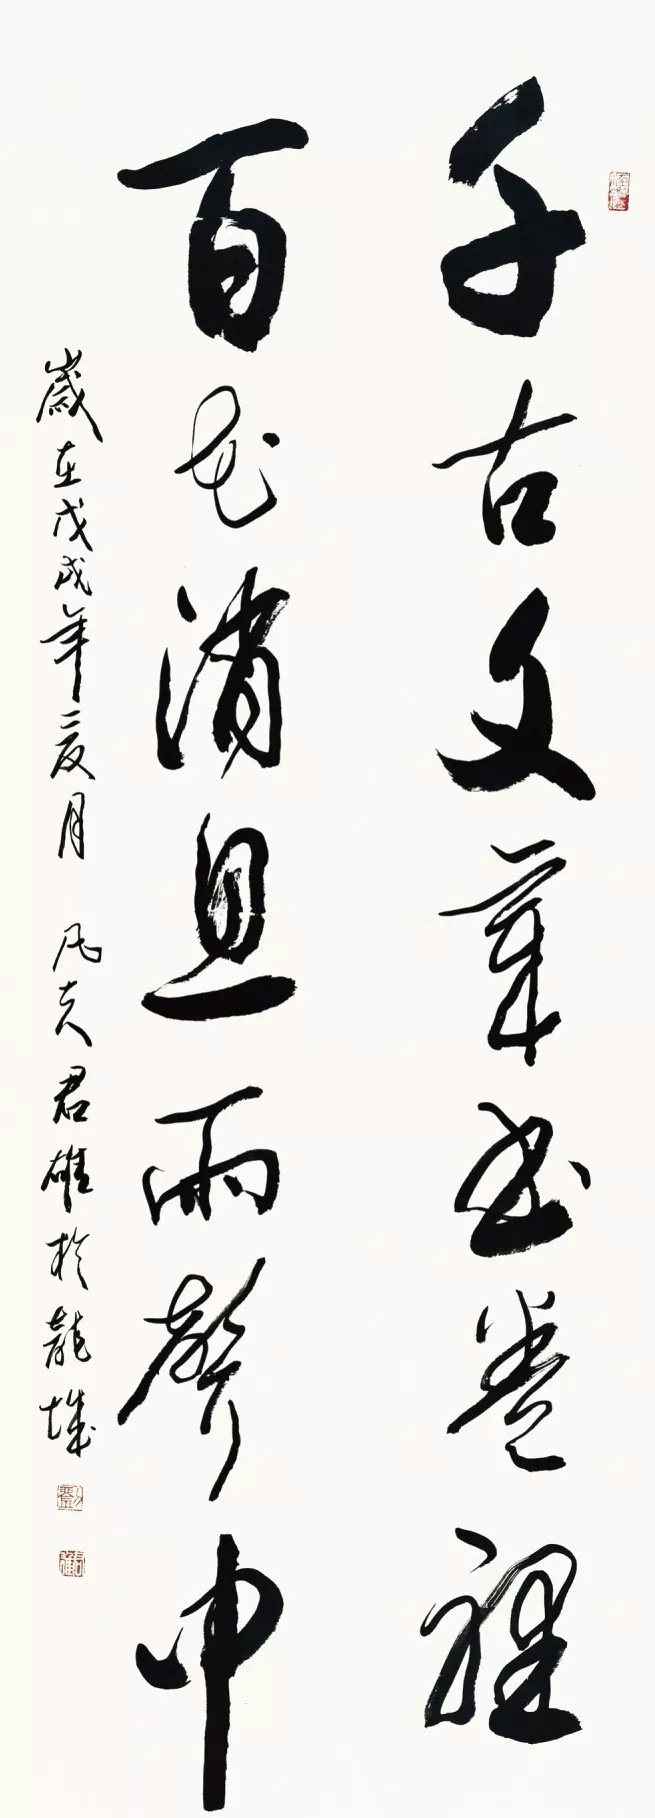 千古文章書卷裡
百花消息雨聲中
歲在戊戌年夏月 凡夫君雄於龍城